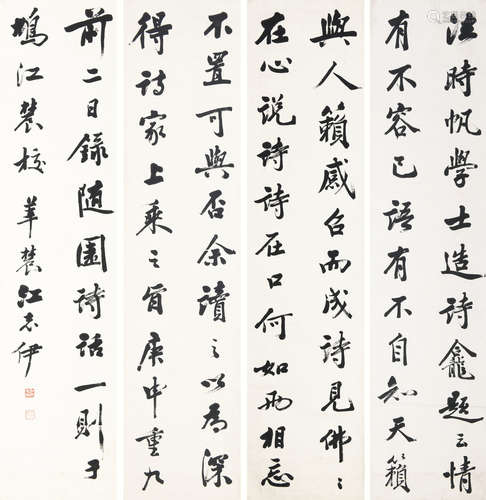 法時帆學士造詩龕題云情
有不容已語有不自知天籟
與人籟感召而成詩見佛〻
在心説詩詩在口何如兩相忘
不置可與否余讀之以為深
得詩家上乘之旨庚申重九
前二日録随園詩話一則于
鳩江辳校莘辳江志伊